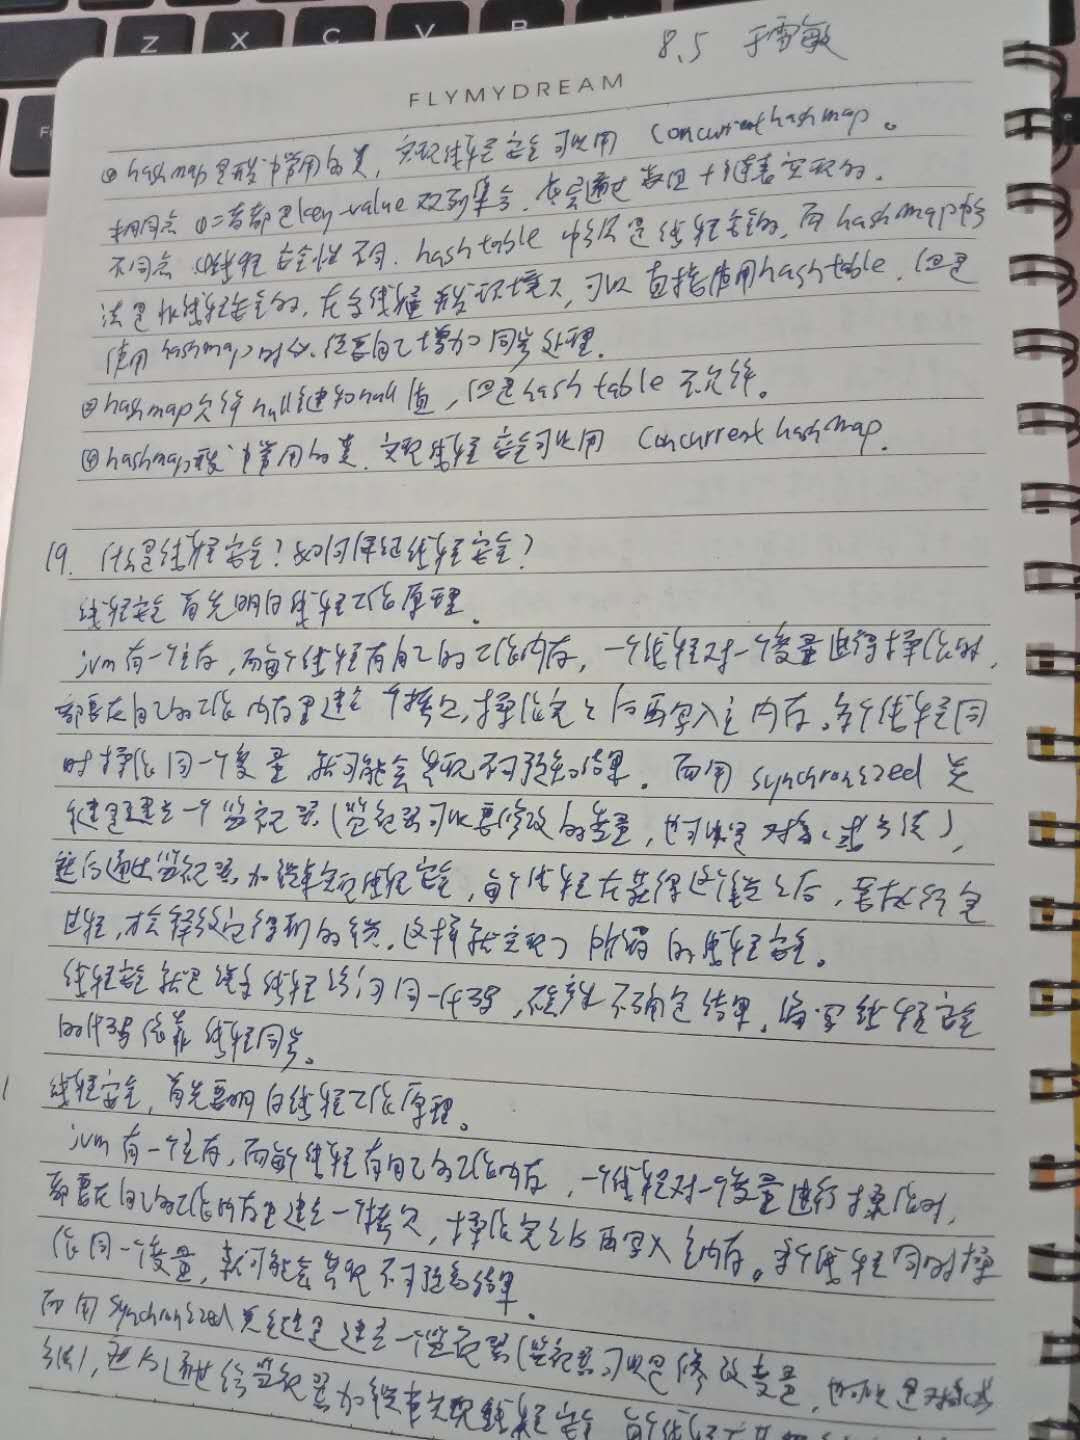 Z X C V B N
8.5 于雪敏
FLYMYDREAM
hashmap是较常用的类，实现线程安全可以用 Concurrenthashmap。
相同点 ①二者都是key-value双列集合，底层通过数组+链表实现的。
不同点 ①线程安全性不同. hashtable 中 是线程安全的, 而hashmap中方
法是非线程安全的, 在多线程并发环境下, 可以直接使用hashtable, 但是
使用hashmap时候, 但要自己增加同步处理.
②hashmap允许null键和null值, 但是hash table 不允许。
④hashmap较常用的类, 实现线程安全可以用 Concurrent hashmap.
19. 什么是线程安全? 如何保证线程安全?
线程安全 首先明白线程工作原理.
jvm有一个主存, 而每个线程有自己的工作内存, 一个线程对一个变量进行操作时,
都要在自己的工作内存里建立一个拷贝, 操作完之后再写入主内存. 多个线程同
时操作同一个变量 就可能会出现不可预知结果. 而用 synchronized 关
键是建立一个监视器(监视器可以要修改的变量, 也可以是对象(或方法),
然后通过监视器加锁来实现线程安全, 每个线程在获得这个锁之后, 要执行完
过程, 才会释放它得到的锁. 这样就实现了所谓的线程安全。
线程安全就是说多线程访问同一代码, 不会产生不确定结果, 编写线程安全
的代码依靠线程同步。
线程安全, 首先要明白线程工作原理。
jvm有一个主存, 而每个线程有自己的工作内存, 一个线程对一个变量进行操作时,
都要在自己的工作内存里建立一个拷贝, 操作完之后再写入主内存。多个线程同时操
作同一个变量, 就可能会出现不可预知结果.
而用 synchronized 关键是建立一个监视器(监视器可以是修改变量, 也可以是对象或
方法), 然后通过给监视器加锁来实现线程安全 每个线程